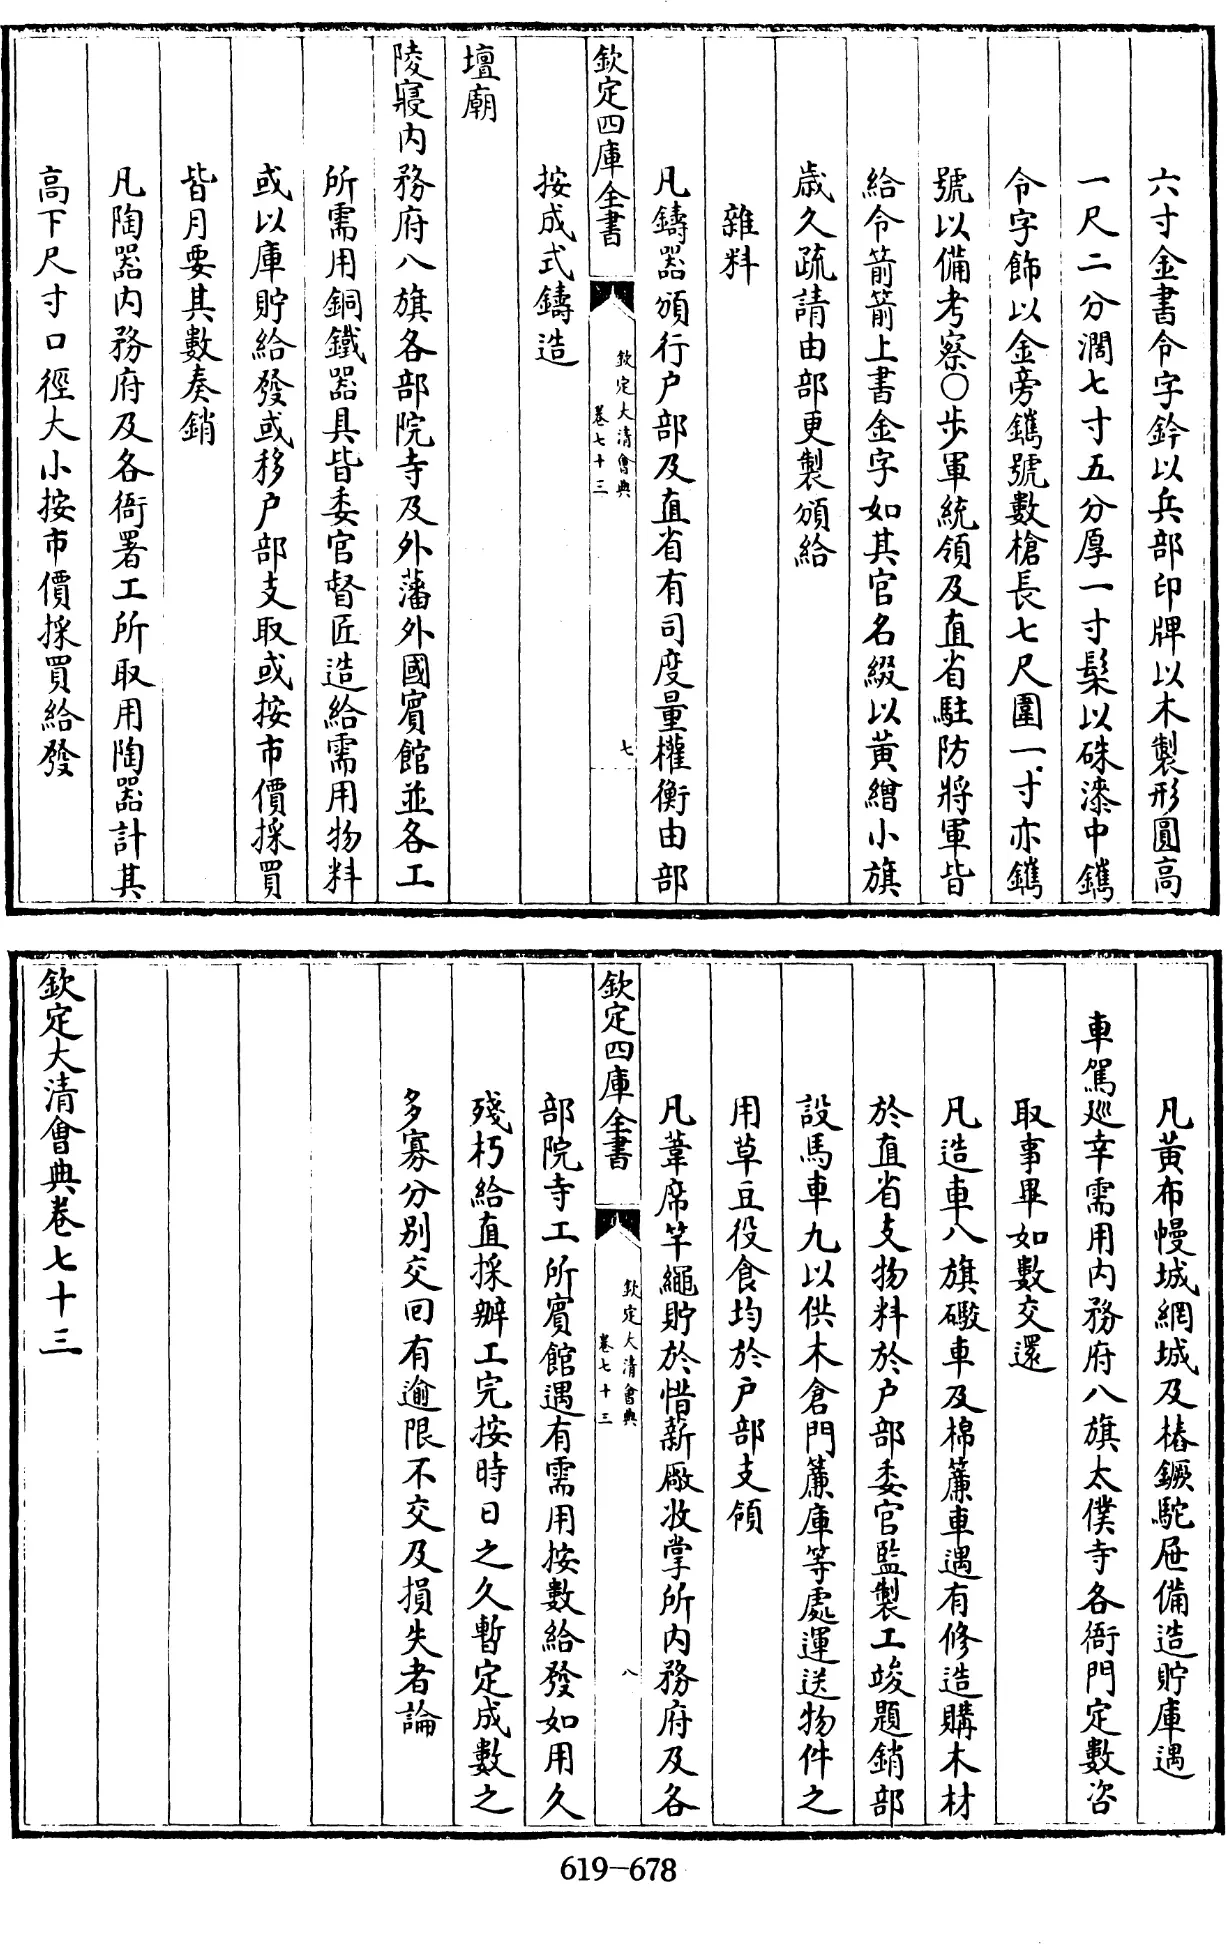 六寸金書令字鈐以兵部印牌以木製形圓高
一尺二分濶七寸五分厚一寸髹以硃漆中鐫
令字飾以金旁鐫號數槍長七尺圍一寸亦鐫
號以備考察〇步軍統領及直省駐防將軍皆
給令箭箭上書金字如其官名綴以黃繒小旗
歲久疏請由部更製頒給
雜料
凡鑄器頒行户部及直省有司度量權衡由部
欽定四庫全書
欽定大清會典
卷七十三
七
按成式鑄造
壇廟
陵寢内務府八旗各部院寺及外藩外國賓館並各工
所需用銅鐵器具皆委官督匠造給需用物料
或以庫貯給發或移户部支取或按市價採買
皆月要其數奏銷
凡陶器内務府及各衙署工所取用陶器計其
高下尺寸口徑大小按市價採買給發
凡黃布幔城網城及樁鐝駝屉備造貯庫遇
車駕巡幸需用内務府八旗太僕寺各衙門定數咨
取事畢如數交還
凡造車八旗礮車及棉簾車遇有修造購木材
於直省支物料於户部委官監製工竣題銷部
設馬車九以供木倉門簾庫等處運送物件之
用草豆役食均於户部支領
凡葦席竿繩貯於惜薪廠收掌所内務府及各
欽定四庫全書
欽定大清會典
卷七十三
八
部院寺工所賓館遇有需用按數給發如用久
殘朽給直採辦工完按時日之久暫定成數之
多寡分别交回有逾限不交及損失者論
欽定大清會典卷七十三
619-678